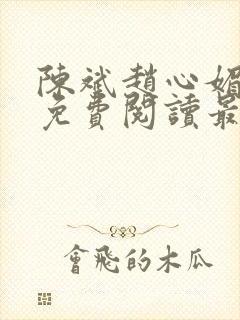 陳斌趙心媚
免費閱讀最
會飛的木瓜